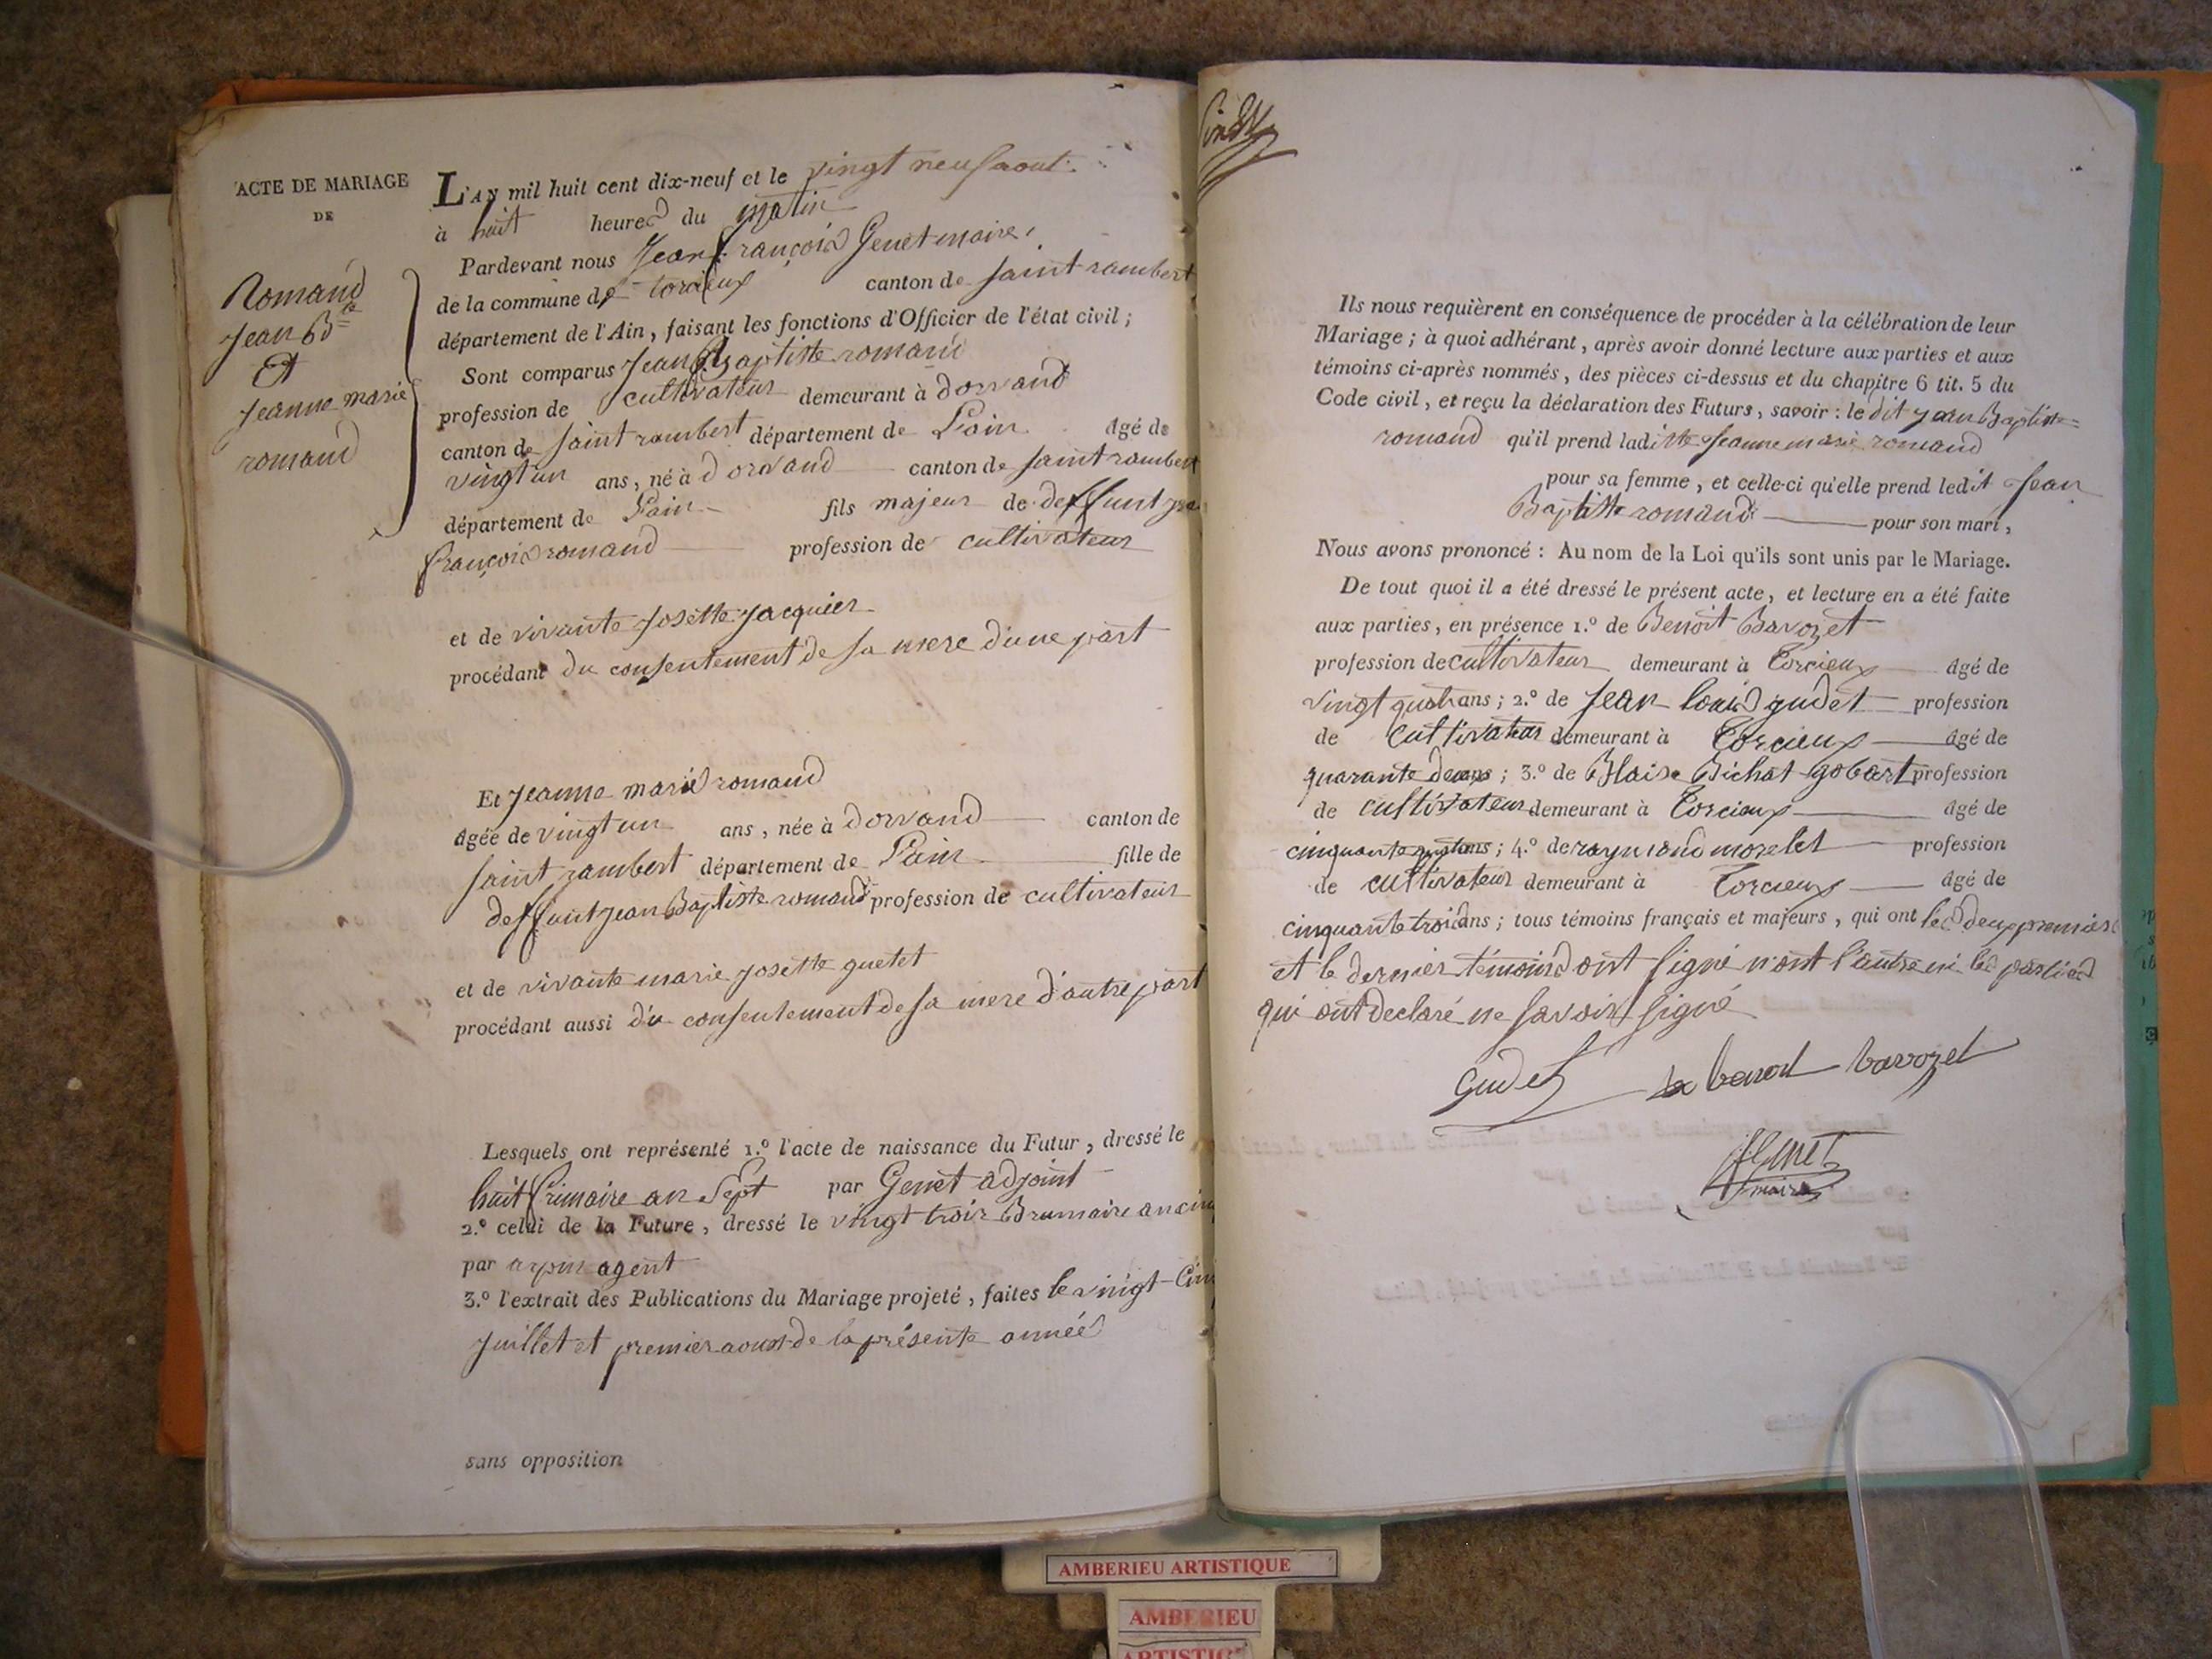 ACTE DE MARIAGE
DE
Romand
Jean Bte
Et
Jeanne marie
romand
L'AN mil huit cent dix-neuf et le vingt neuf aout
à huit heures du matin
Pardevant nous Jean françois Genet maire
de la commune de torcieux canton de saint rambert
département de l'Ain, faisant les fonctions d'Officier de l'état civil ;
Sont comparus Jean Baptiste romand
profession de cultivateur demeurant à dorvand
canton de saint rambert département de Lain âgé de
vingt un ans, né à dorvand canton de saint rambert
département de Lain fils majeur de deffunt
françois romand profession de cultivateur
et de vivante josette jacquier
procédant du consentement de sa mere d'une part
Et jeanne marie romand
âgée de vingt un ans, née à dorvand canton de
saint rambert département de Lain fille de
deffunt jean Baptiste romand profession de cultivateur
et de vivante marie josette guetet
procédant aussi du consentement de sa mere d'autre part
Lesquels ont représenté 1.º l'acte de naissance du Futur, dressé le
huit frimaire an Sept par Genet adjoint
2.º celui de la Future, dressé le vingt trois Brumaire an
par agent
3.º l'extrait des Publications du Mariage projeté, faites le vingt
juillet et premier aoust de la présente année
sans opposition
Ils nous requièrent en conséquence de procéder à la célébration de leur
Mariage ; à quoi adhérant, après avoir donné lecture aux parties et aux
témoins ci-après nommés, des pièces ci-dessus et du chapitre 6 tit. 5 du
Code civil, et reçu la déclaration des Futurs, savoir : le dit jean Baptiste
romand qu'il prend laditte jeanne marie romand
pour sa femme, et celle-ci qu'elle prend ledit jean
Baptiste romand pour son mari,
Nous avons prononcé : Au nom de la Loi qu'ils sont unis par le Mariage.
De tout quoi il a été dressé le présent acte, et lecture en a été faite
aux parties, en présence 1.º de Benoit Bavozet
profession de cultivateur demeurant à Torcieux âgé de
vingt ans ; 2.º de jean louis gudet profession
de cultivateur demeurant à Torcieux âgé de
quarante deux ans ; 3.º de Blaise Bichat gobart profession
de cultivateur demeurant à Torcieux âgé de
cinquante ans ; 4.º de raymond morelet profession
de cultivateur demeurant à Torcieux âgé de
cinquante trois ans ; tous témoins français et majeurs, qui ont les deux premiers
et le dernier témoins ont signé n'ont l'autre ni les parties
qui ont declaré ne savoir signé
Gudet benoit bavozet
Genet
maire
AMBERIEU ARTISTIQUE
AMBERIEU
ARTISTIQ